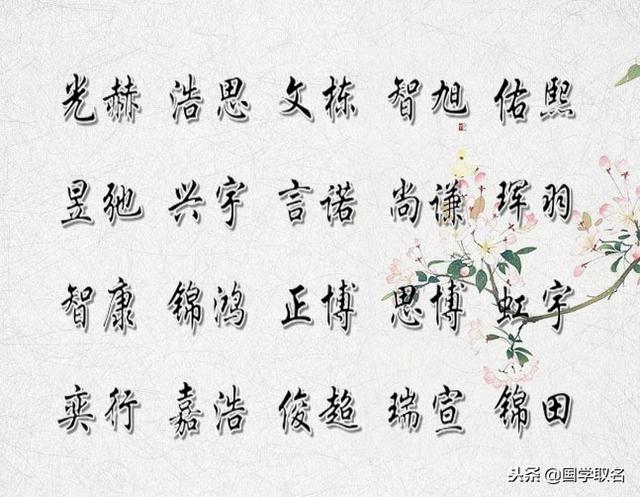 光赫 浩思 文栋 智旭 佑熙
昱驰 兴宇 言诺 尚谦 珲羽
智康 锦鸿 正博 思博 虹宇
奕行 嘉浩 俊超 瑞宣 锦田
头条 @国学取名